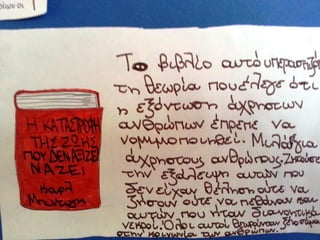 Το βιβλίο αυτό υπεραστηζε
τη θεωρία που έλεγε ότι
η εξόντωση άχρηστων
ανθρώπων έπρεπε να
νομιμοποιηθεί. Μιλάει για
άχρηστους ανθρώπους. Ζητούσε
την εξάλειψη αυτών που
δεν είχαν θέληση ούτε να
ζήσουν ούτε να πεθάνουν και
αυτών που ήταν διανοητικά
νεκροί. Όλοι αυτοί θεωρούνταν
στην κοινωνία των ανθρώπων.
Η ΚΑΤΑΣΤΡΟΦΗ
ΤΗΣ ΖΩΗΣ
ΠΟΥ ΔΕΝ ΑΞΙΖΕΙ
ΝΑ ΖΕΙ
Καρλ